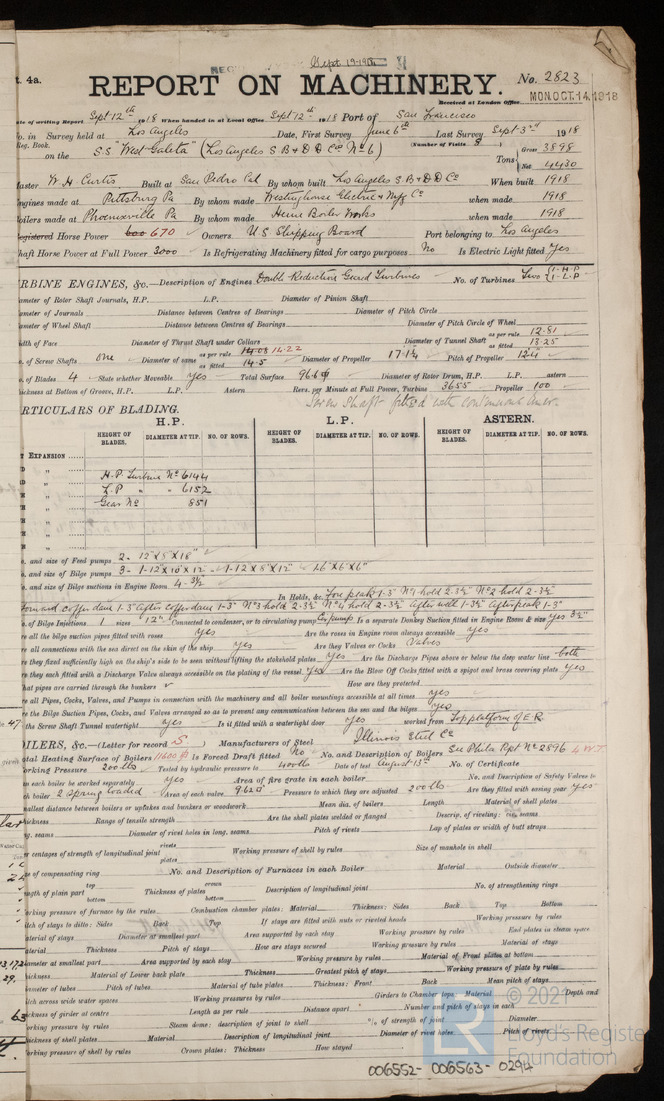 Sept 19 1918
t. 4a.
REPORT ON MACHINERY.
No. 2823
Received at London Office
MON. OCT. 14. 1918
ate of writing Report Sept 12th 1918 When handed in at Local Office Sept 12th 1918 Port of San Francisco
o. in Survey held at Los Angeles Date, First Survey June 6th Last Survey Sept 3rd 1918
Reg. Book. (Number of Visits 8)
on the S.S. "West Galeta" (Los Angeles S B & D D Co No 6) Tons Gross 3898
Net 4430
Master W. H. Curtis Built at San Pedro Cal By whom built Los Angeles S B & D D Co When built 1918
ngines made at Pittsburg Pa By whom made Westinghouse Electric & Mfg Co when made 1918
oilers made at Phoenixville Pa By whom made Heine Boiler Works when made 1918
egistered Horse Power 600 670 Owners U S Shipping Board Port belonging to Los Angeles
haft Horse Power at Full Power 3000 Is Refrigerating Machinery fitted for cargo purposes No Is Electric Light fitted Yes
RBINE ENGINES, &c.—Description of Engines Double Reduction Geared Turbines No. of Turbines Two 1-H-P 1-L-P
ameter of Rotor Shaft Journals, H.P. L.P. Diameter of Pinion Shaft
ameter of Journals Distance between Centres of Bearings Diameter of Pitch Circle
ameter of Wheel Shaft Distance between Centres of Bearings Diameter of Pitch Circle of Wheel
idth of Face Diameter of Thrust Shaft under Collars Diameter of Tunnel Shaft as per rule 12.81 as fitted 13.25
o. of Screw Shafts one Diameter of same as per rule 14.08 14.22 as fitted 14.5 Diameter of Propeller 17-1¼ Pitch of Propeller 12-4
o. of Blades 4 State whether Moveable yes Total Surface 96.6 Diameter of Rotor Drum, H.P. L.P. astern
hickness at Bottom of Groove, H.P. L.P. Astern Revs. per Minute at Full Power, Turbine 3655 Propeller 100
Screw Shaft fitted with continuous liner.
RTICULARS OF BLADING.
H.P. L.P. ASTERN.
HEIGHT OF BLADES. DIAMETER AT TIP. NO. OF ROWS. HEIGHT OF BLADES. DIAMETER AT TIP. NO. OF ROWS. HEIGHT OF BLADES. DIAMETER AT TIP. NO. OF ROWS.
T EXPANSION
H.P. Turbine No 6144
L.P. " " 6152
Gear No 851
o. and size of Feed pumps 2- 12"X8"X18"
o. and size of Bilge pumps 3- 1-12X10X12 1-12X8"X12" 1-6"X6"X6"
o. and size of Bilge suctions in Engine Room 4-3½
In Holds, &c. Fore peak 1-3" No 1 hold 2-3½" No 2 hold 2-3½"
Forward cofferdam 1-3" After cofferdam 1-3" No 3 hold 2-3½" No 4 hold 2-3½" After well 1-3½" After peak 1-3"
o. of Bilge Injections 1 sizes 12" Connected to condenser, or to circulating pump C. pump Is a separate Donkey Suction fitted in Engine Room & size yes 3½"
re all the bilge suction pipes fitted with roses yes Are the roses in Engine room always accessible yes
re all connections with the sea direct on the skin of the ship yes Are they Valves or Cocks Valves
re they fixed sufficiently high on the ship's side to be seen without lifting the stokehold plates yes Are the Discharge Pipes above or below the deep water line both
re they each fitted with a Discharge Valve always accessible on the plating of the vessel yes Are the Blow Off Cocks fitted with a spigot and brass covering plate yes
hat pipes are carried through the bunkers How are they protected
re all Pipes, Cocks, Valves, and Pumps in connection with the machinery and all boiler mountings accessible at all times yes
re the Bilge Suction Pipes, Cocks, and Valves arranged so as to prevent any communication between the sea and the bilges yes
the Screw Shaft Tunnel watertight yes Is it fitted with a watertight door yes worked from Top platform of E.R
OILERS, &c.—(Letter for record S) Manufacturers of Steel Illinois Steel Co
otal Heating Surface of Boilers 11600 Is Forced Draft fitted No No. and Description of Boilers See Phila Rpt No 2896 4 W.T.
orking Pressure 200 lbs Tested by hydraulic pressure to 400 lbs Date of test August 13th No. of Certificate
an each boiler be worked separately yes Area of fire grate in each boiler No. and Description of Safety Valves to
ch boiler 2 spring loaded Area of each valve 9.62 Pressure to which they are adjusted 200 lbs Are they fitted with easing gear yes
mallest distance between boilers or uptakes and bunkers or woodwork Mean dia. of boilers Length Material of shell plates
hickness Range of tensile strength Are the shell plates welded or flanged Descrip. of riveting: cir. seams
ng. seams Diameter of rivet holes in long. seams Pitch of rivets Lap of plates or width of butt straps
er centages of strength of longitudinal joint rivets plates Working pressure of shell by rules Size of manhole in shell
ze of compensating ring No. and Description of Furnaces in each Boiler Material Outside diameter
ength of plain part top bottom Thickness of plates crown bottom Description of longitudinal joint No. of strengthening rings
orking pressure of furnace by the rules Combustion chamber plates: Material Thickness: Sides Back Top Bottom
itch of stays to ditto: Sides Back Top If stays are fitted with nuts or riveted heads Working pressure by rules
aterial of stays Diameter at smallest part Area supported by each stay Working pressure by rules End plates in steam space
aterial Thickness Pitch of stays How are stays secured Working pressure by rules Material of stays
iameter at smallest part Area supported by each stay Working pressure by rules Material of Front plates at bottom
hickness Material of Lower back plate Thickness Greatest pitch of stays Working pressure of plate by rules
iameter of tubes Pitch of tubes Material of tube plates Thickness: Front Back Mean pitch of stays
itch across wide water spaces Working pressures by rules Girders to Chamber tops: Material Depth and
hickness of girder at centre Length as per rule Distance apart Number and pitch of stays in each
orking pressure by rules Steam dome: description of joint to shell % of strength of joint Diameter
hickness of shell plates Material Description of longitudinal joint Diameter of rivet holes Pitch of rivets
orking pressure of shell by rules Crown plates: Thickness How stayed
© 2021
Lloyd's Register
Foundation
006552- 006563- 0294